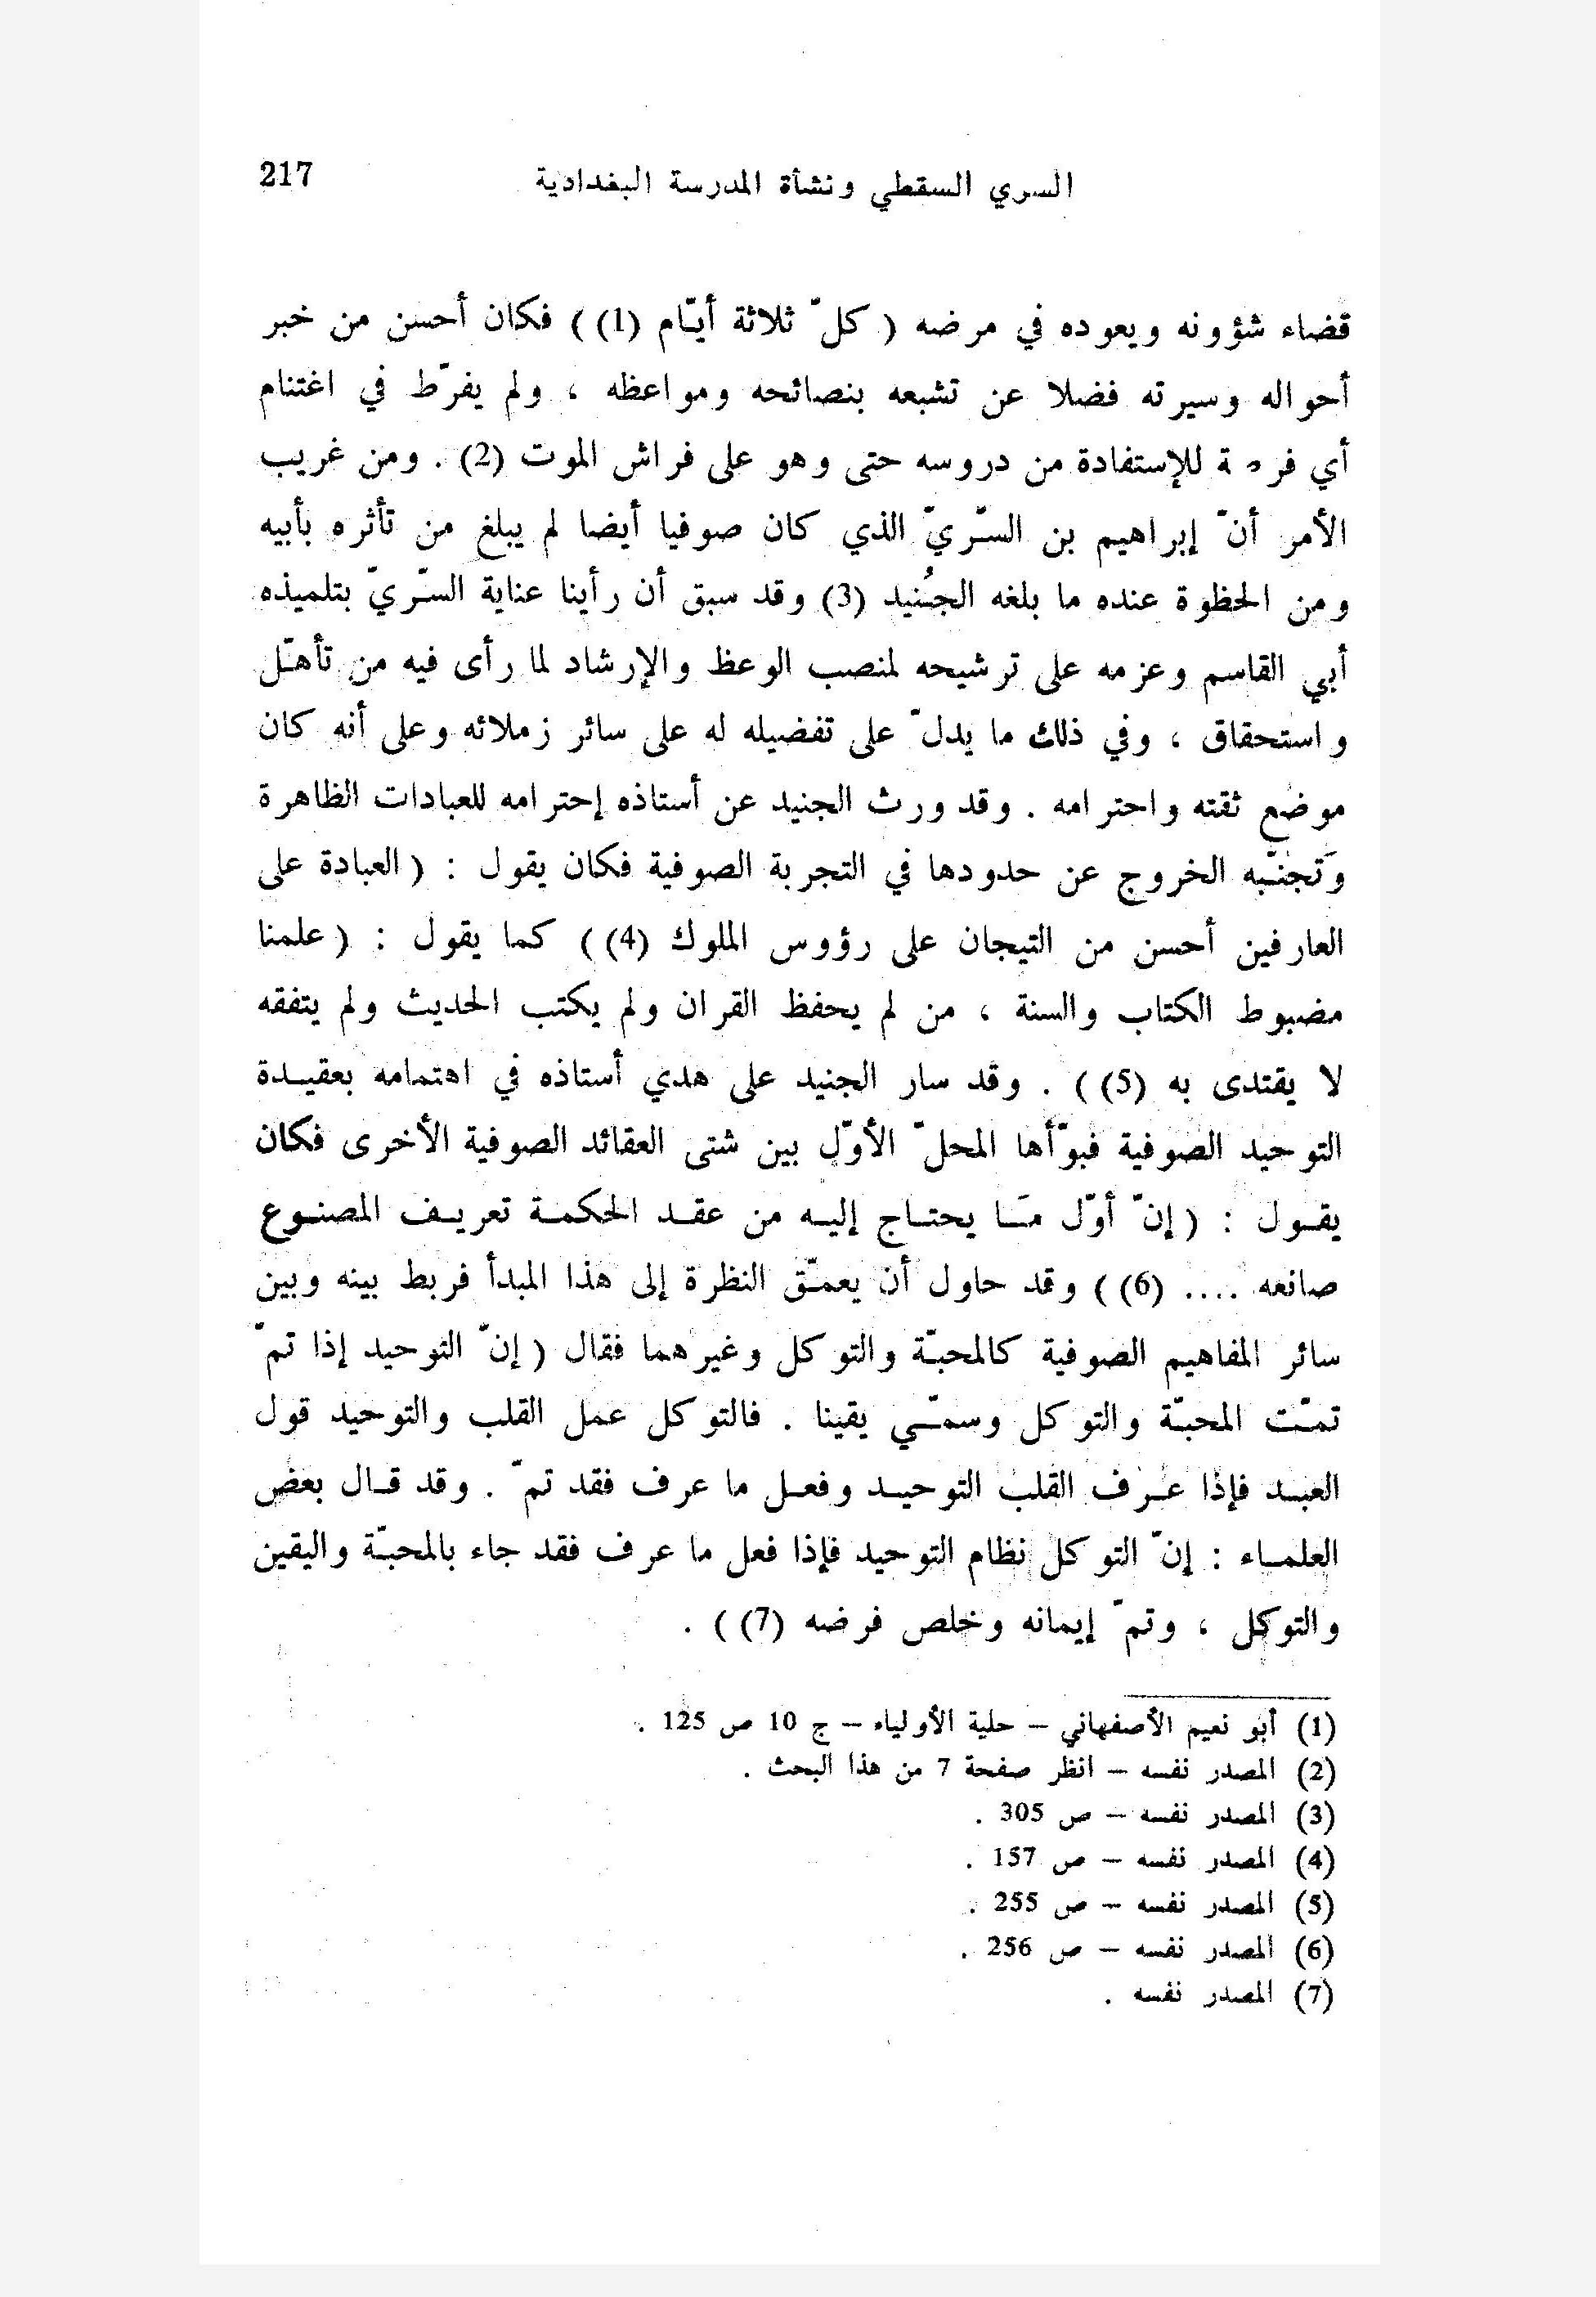 السري السقطي ونشأة المدرسة البغدادية 217
قضاء شؤونه ويعوده في مرضه ( كلّ ثلاثة أيّام (1) ) فكان أحسن من خبر
أحواله وسيرته فضلا عن تشبعه بنصائحه ومواعظه ، ولم يفرّط في اغتنام
أي فر ة للإستفادة من دروسه حتى وهو على فراش الموت (2) . ومن غريب
الأمر أنّ إبراهيم بن السّريّ الذي كان صوفيا أيضا لم يبلغ من تأثره بأبيه
ومن الحظوة عنده ما بلغه الجُنيد (3) وقد سبق أن رأينا عناية السّريّ بتلميذه
أبي القاسم وعزمه على ترشيحه لمنصب الوعظ والإرشاد لما رأى فيه من تأهّل
واستحقاق ، وفي ذلك ما يدلّ على تفضيله له على سائر زملائه وعلى أنه كان
موضع ثقته واحترامه . وقد ورث الجنيد عن أستاذه إحترامه للعبادات الظاهرة
وَتجنّبه الخروج عن حدودها في التجربة الصوفية فكان يقول : ( العبادة على
العارفين أحسن من التيجان على رؤوس الملوك (4) ) كما يقول : ( علمنا
مضبوط الكتاب والسنة ، من لم يحفظ القران ولم يكتب الحديث ولم يتفقه
لا يقتدى به (5) ) . وقد سار الجنيد على هدي أستاذه في اهتمامه بعقيدة
التوحيد الصوفية فبوّأها المحلّ الأوّل بين شتى العقائد الصوفية الأخرى فكان
يقول : ( إنّ أوّل مَا يحتاج إليه من عقد الحكمة تعريف المصنوع
صانعه .... (6) ) وقد حاول أن يعمّق النظرة إلى هذا المبدأ فربط بينه وبين
سائر المفاهيم الصوفية كالمحبّة والتوكل وغيرهما فقال ( إنّ التوحيد إذا تمّ
تمّت المحبّة والتوكل وسمّي يقينا . فالتوكل عمل القلب والتوحيد قول
العبد فإذا عرف القلب التوحيد وفعل ما عرف فقد تمّ . وقد قال بعض
العلماء : إنّ التوكل نظام التوحيد فإذا فعل ما عرف فقد جاء بالمحبّة واليقين
والتوكل ، وتمّ إيمانه وخلص فرضه (7) ) .
(1) أبو نعيم الأصفهاني – حلية الأولياء – ج 10 ص 125 .
(2) المصدر نفسه – انظر صفحة 7 من هذا البحث .
(3) المصدر نفسه – ص 305 .
(4) المصدر نفسه – ص 157 .
(5) المصدر نفسه – ص 255 .
(6) المصدر نفسه – ص 256 .
(7) المصدر نفسه .